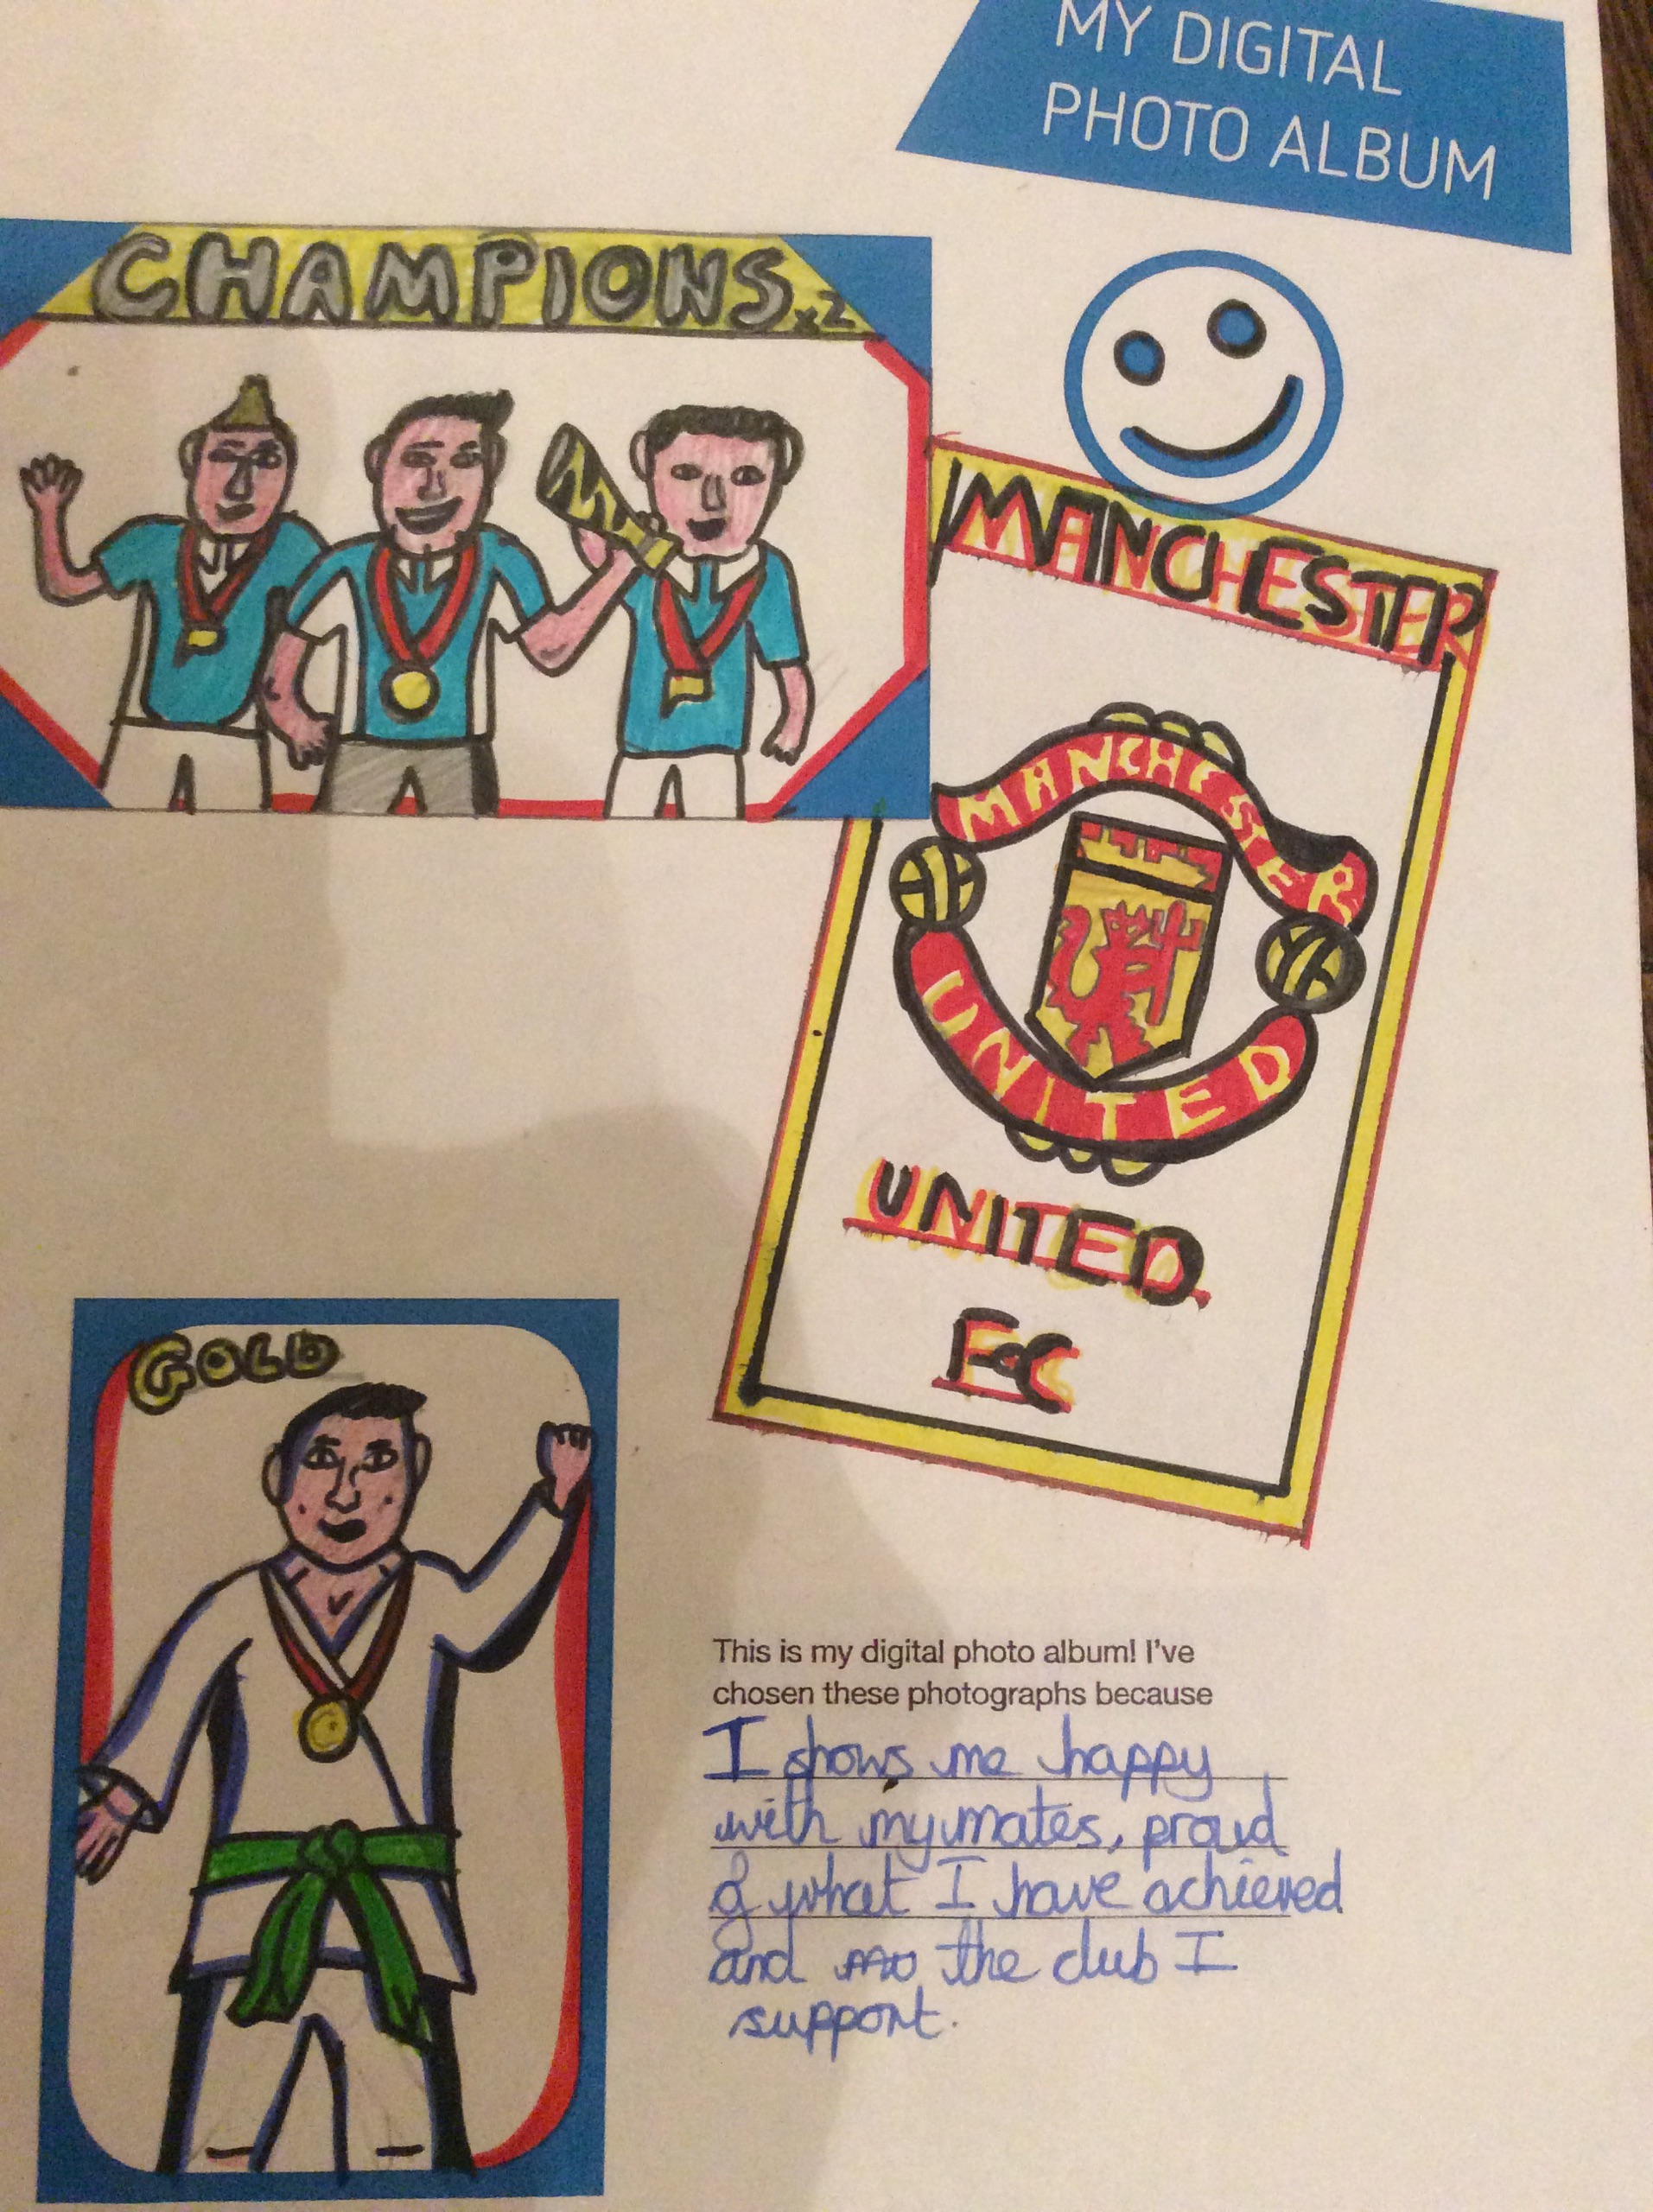 MY DIGITAL
PHOTO ALBUM
CHAMPIONS x2
MANCHESTER
MANCHESTER
UNITED
UNITED
FC
GOLD
This is my digital photo album! I've
chosen these photographs because
I shows me happy
with my mates, proud
of what I have achieved
and the club I
support.